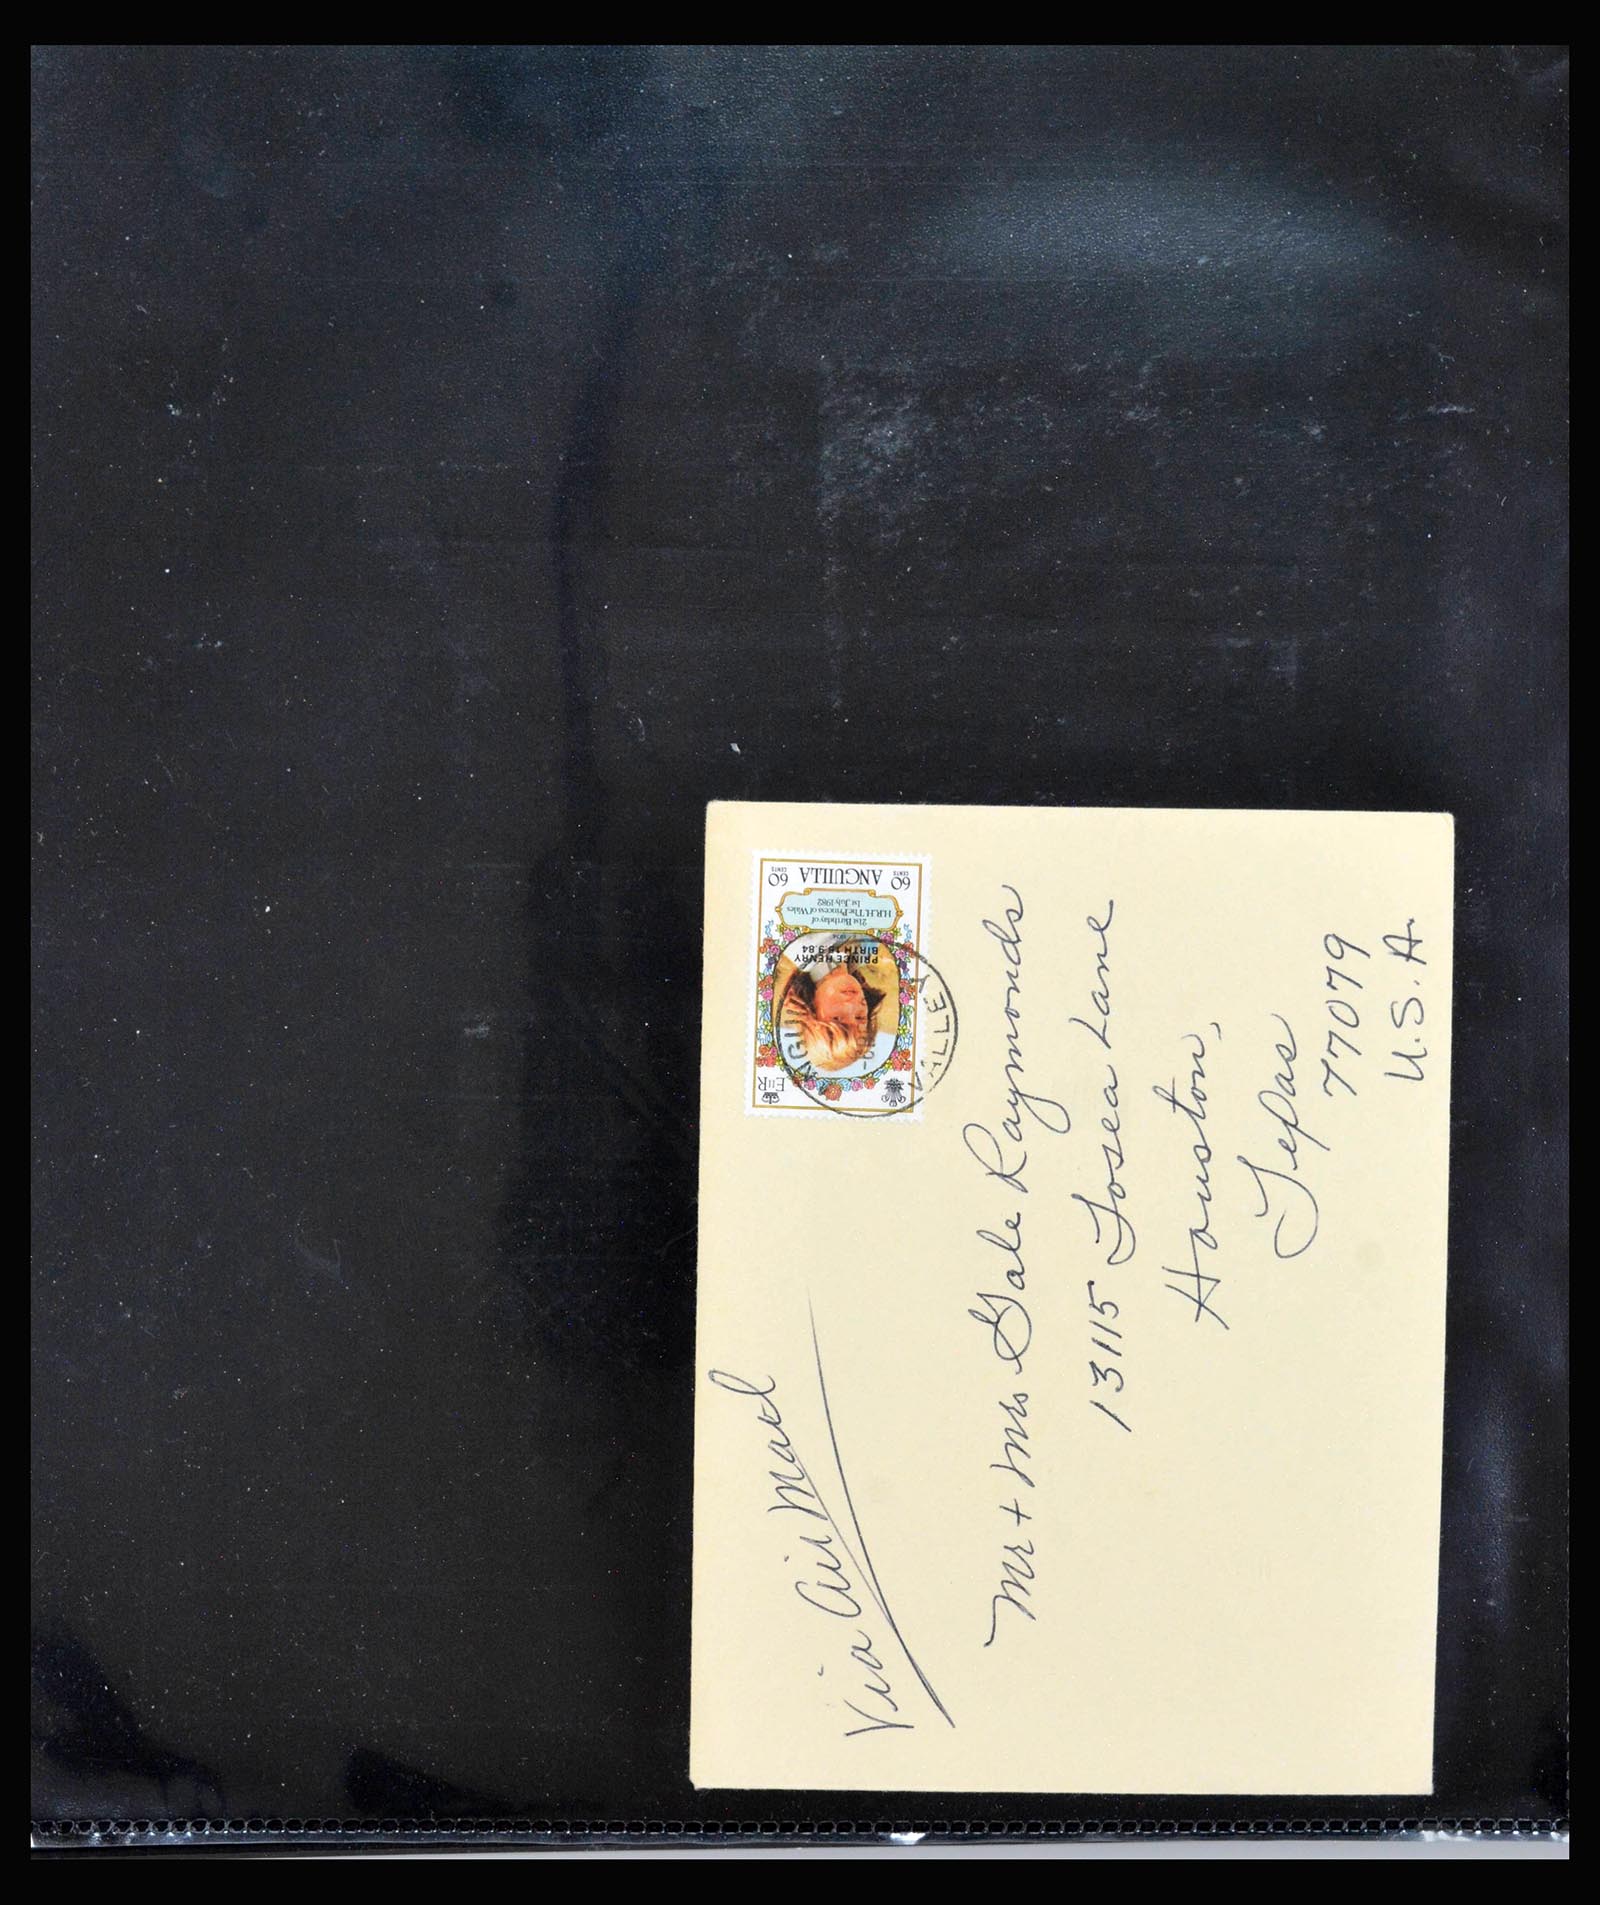 Via Air Mail
Mr + Mrs Gale Raymonds
13115 Tosca Lane
Houston,
Texas
77079
U.S.A.
60 CENTS ANGUILLA 60 CENTS
21st Birthday of
H.R.H. The Princess of Wales
1st July 1982
PRINCE HENRY
BIRTH 15.9.84
EIIR
ANGUILLA
VALLEY